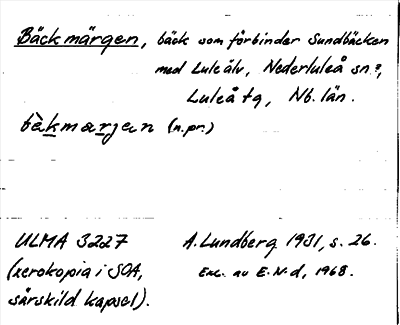 Bäckmärgen, bäck som förbinder Sundbäcken
med Luleälv, Nederluleå sn?,
Luleå tg, Nb. län.
bèkmarjan (n.pr.)
ULMA 3227 A. Lundberg 1931, s. 26.
(xerokopia i SOA, Exc. av E.N-d, 1968.
särskild kapsel).